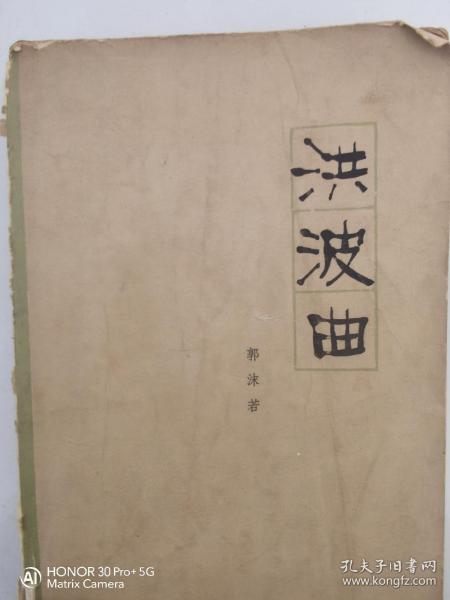 洪波曲
郭沫若
AI HONOR 30 Pro+ 5G
Matrix Camera
孔夫子旧书网
www.kongfz.com